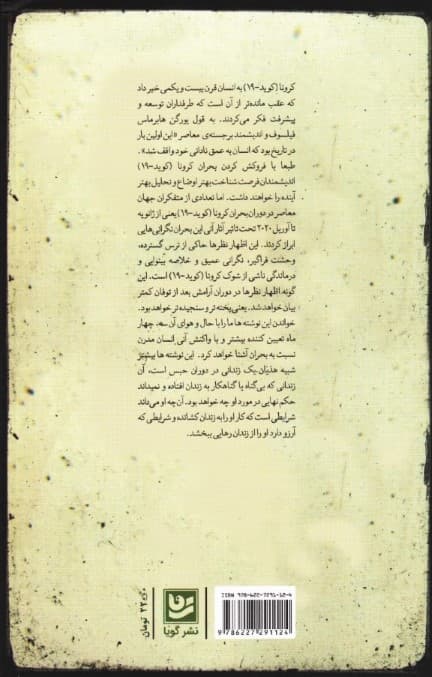 کرونا (کوید-۱۹) به انسان قرن بیست و یکمی خبر داد
که عقب مانده‌تر از آن است که طرفداران توسعه و
پیشرفت فکر می‌کردند. به قول یورگن هابرماس
فیلسوف و اندیشمند برجسته‌ی معاصر «این اولین بار
در تاریخ بود که انسان به عمق نادانی خود واقف شد».
طبعا با فروکش کردن بحران کرونا (کوید-۱۹)
اندیشمندان فرصت شناخت بهتر اوضاع و تحلیل بهتر
آینده را خواهند داشت. اما تعدادی از متفکران جهان
معاصر در دوران بحران کرونا (کوید-۱۹) یعنی از ژانویه
تا آوریل ۲۰۲۰ تحت تاثیر آثار آنی این بحران نگرانی‌هایی
ابراز کردند. این اظهار نظرها حاکی از ترس گسترده،
وحشت فراگیر، نگرانی عمیق و خلاصه بینوایی و
درماندگی ناشی از شوک کرونا (کوید-۱۹) است. این
گونه اظهار نظرها در دوران آرامش بعد از توفان کمتر
بیان خواهد شد. یعنی پخته‌تر و سنجیده‌تر خواهد بود.
خواندن این نوشته‌ها ما را با حال و هوای آن سه، چهار
ماه تعیین کننده بیشتر و با واکنش آنی انسان مدرن
نسبت به بحران آشنا خواهد کرد. این نوشته‌ها بیشتر
شبیه هذیان یک زندانی در دوران حبس است، آن
زندانی که بی‌گناه یا گناهکار به زندان افتاده و نمیداند
حکم نهایی در مورد او چه خواهد بود. آن چه او می‌داند
شرایطی است که کار او را به زندان کشانده و شرایطی که
آرزو دارد او را از زندان رهایی ببخشد.
ISBN 978-622-7291-12-4
9 786227 291124
نشر گویا
تومان